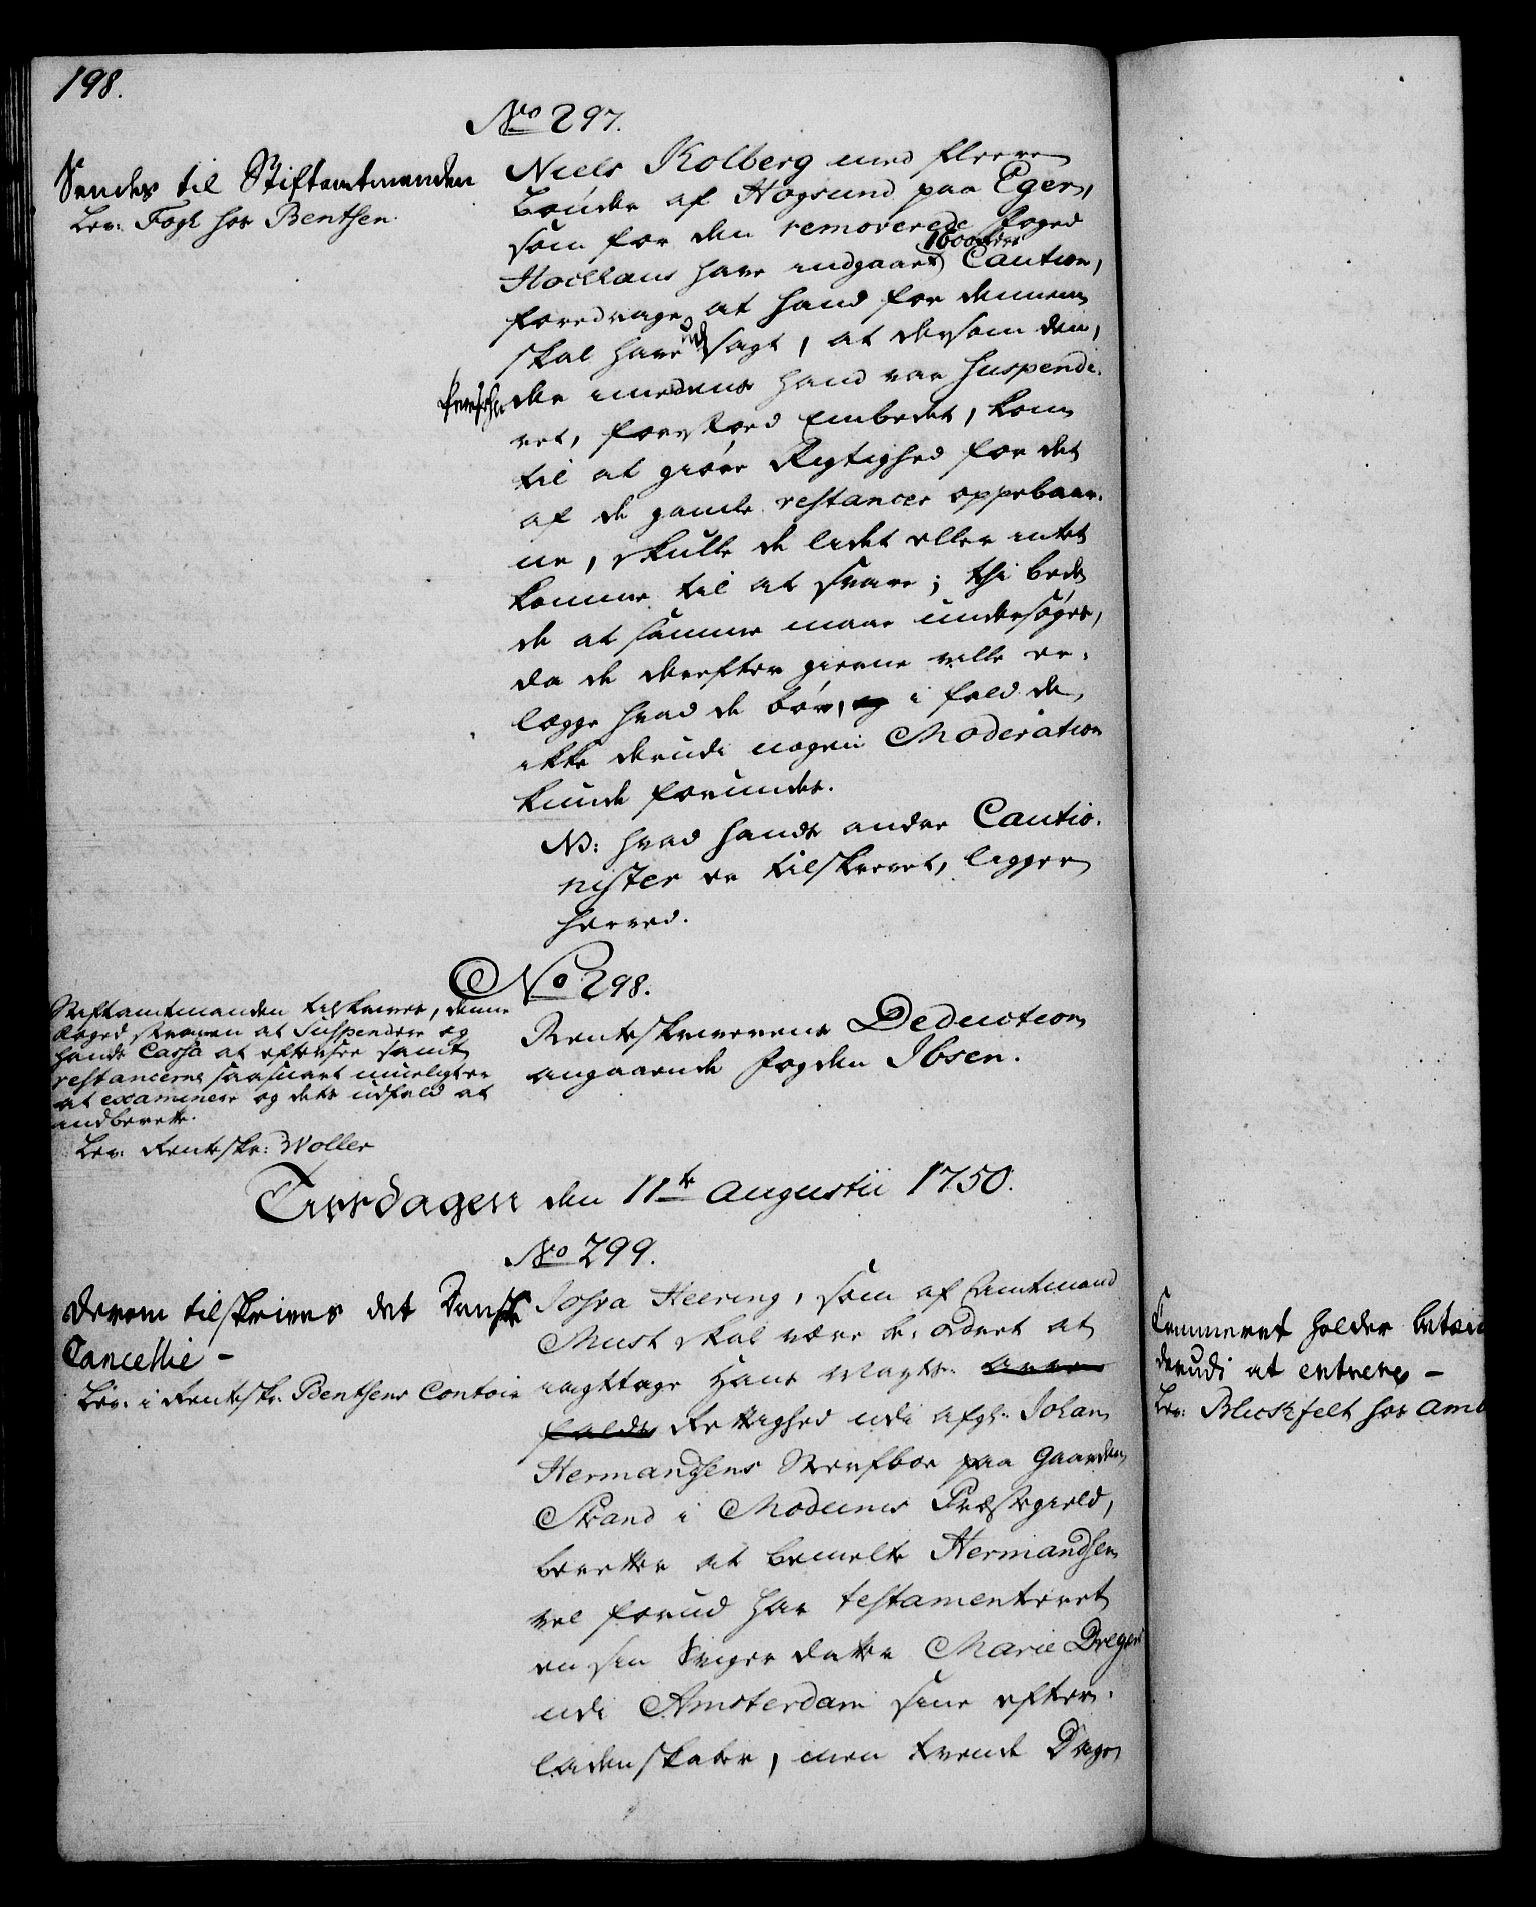 198.
No 297.
Sendes til Stiftamtmanden
Lev: Fogt hos Bentsen.
Niels Kolberg med fleere
Bønder af Hogsund paa Eger,
som for den removerede Foged
1600 rdr
Hochhaus have indgaaet Caution,
foredrager at hand for dennem
skal have udsagt, at dersom den,
der imedens hand var suspende-
ret, forestoed Embedet, kom
til at giøre Rigtighed for det
af de gamle restancer oppebaar-
ne, skulle de lidet eller intet
komme til at svare; thi bede
de at samme maae undersøges,
da de derefter gierne ville er-
legge hvad de bør, i fald de
ikke derudi nogen Moderation
kunde forundes.
NB: hvad hands andre Cautio-
nister er tilskrevet, ligger
herved.
No 298.
Stiftamtmanden tilskrives, denne
Foged strax at suspendere og
hands Cassa at eftersee samt
restancerne saasnart mueligt er
at examinere og dets udfald at
indberette.
Lev: Renteskr: Woller
Renteskriverens Deduction
angaaende Fogden Ibsen.
Tiisdagen den 11te Augustii 1750.
No 299.
Derom tilskrives det Danske
Cancellie -
Lev: i Renteskr: Bentsens Contoir
Josva Heering, som af Amtmand
Must skal være be: ordret at
iagttage Hans Mayts:
Rettighed udi afg: Johan
Hermandsens Sterfboe paa Gaarden
Strand i Modums Præstegield,
beretter at bemelte Hermandsen
vel forud har testamenteret
en sin Svigerdatter Marie Dreyer
udi Amsterdam sine efter-
ladenskaber, men trende Dage
Cammeret holder
derudi at entrere -
Lev: Blichfelt hos